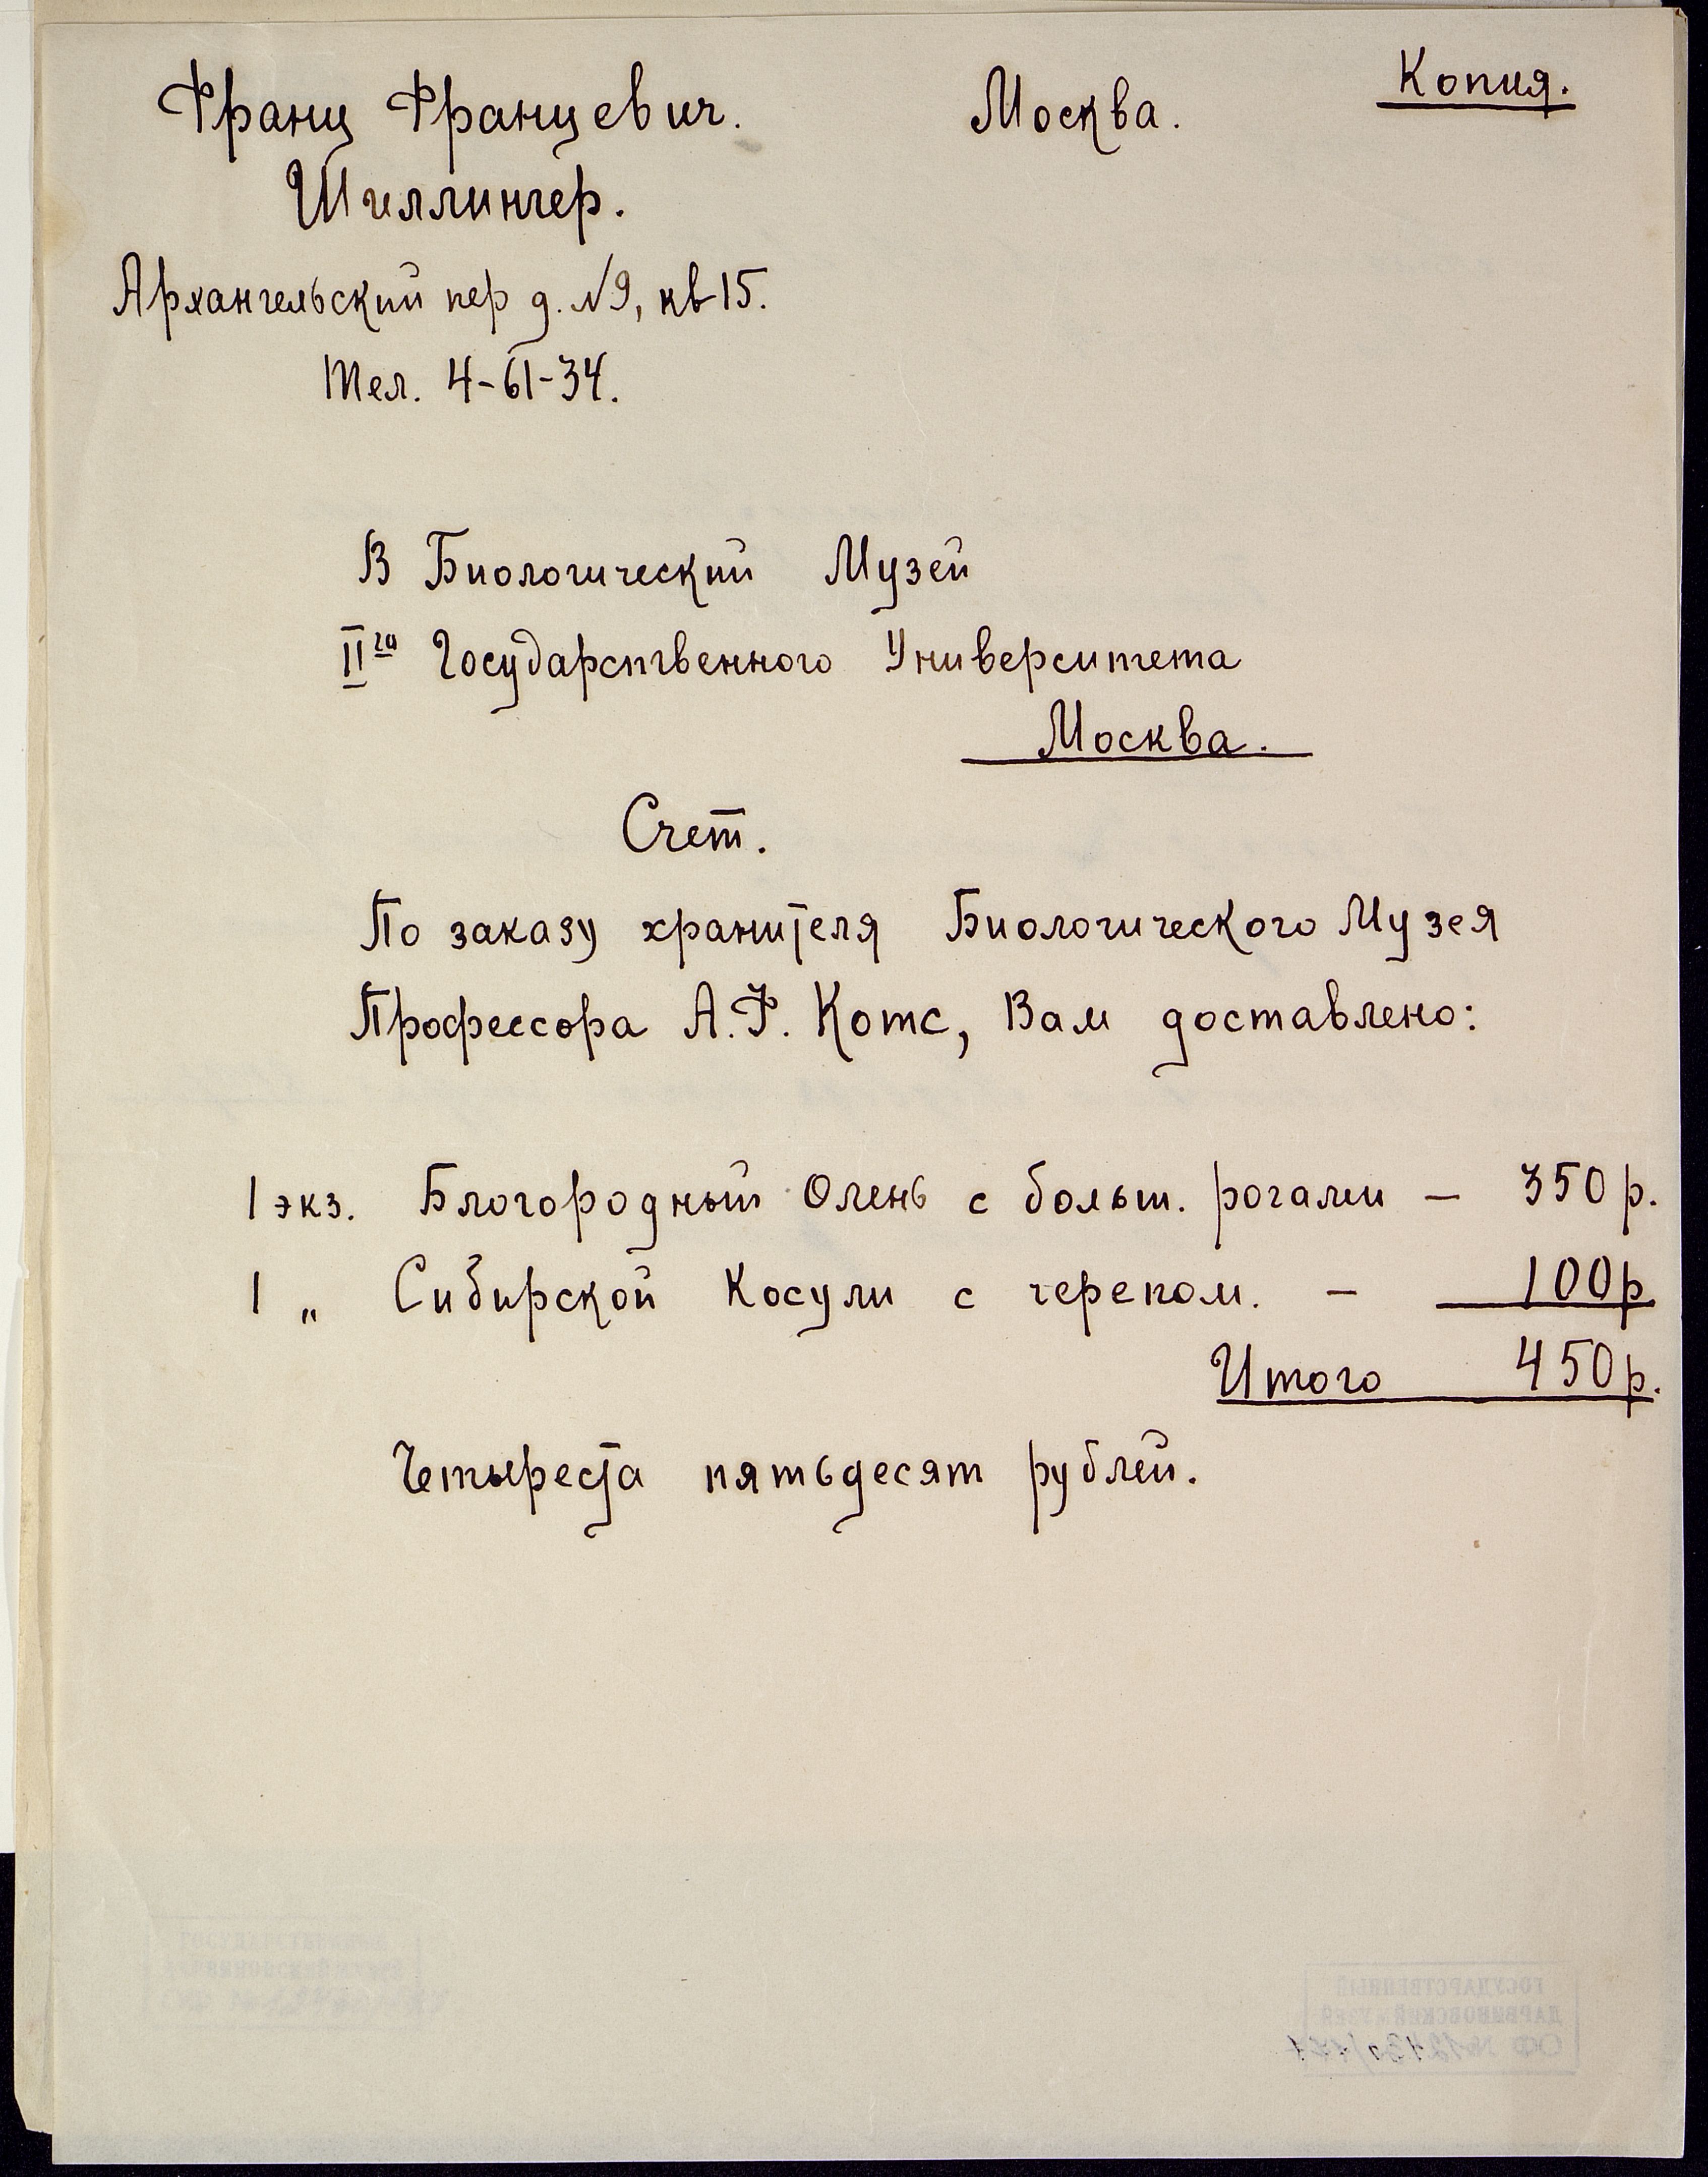 Копия.
Франц Францевич. Москва.
Шиллингер.
Архангельский пер д. №9, кв 15.
Тел. 4-61-34.
В Биологический Музей
II го Государственного Университета
Москва.
Счет.
По заказу хранителя Биологического Музея
Профессора А.Ф. Котс, Вам доставлено:
1 экз. Благородный Олень с больш. рогами — 350 р.
1 „ Сибирской Косули с черепом. — 100р
Итого 450р.
Четыреста пятьдесят рублей.
ГОСУДАРСТВЕННЫЙ
ДАРВИНОВСКИЙ МУЗЕЙ
ГОСУДАРСТВЕННЫЙ
ДАРВИНОВСКИЙ МУЗЕЙ